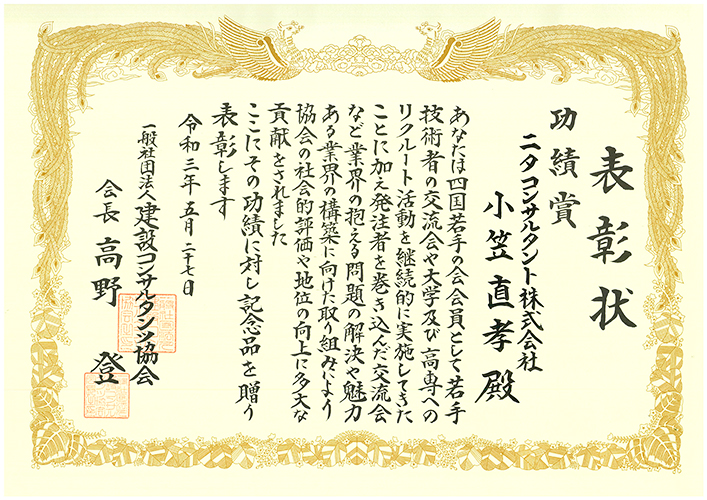 表彰状
功績賞
ニタコンサルタント株式会社
小笠直孝殿
あなたは四国若手の会会員として若手
技術者の交流会や大学及び高専への
リクルート活動を継続的に実施してきた
ことに加え発注者を巻き込んだ交流会
など業界の抱える問題の解決や魅力
ある業界の構築に向けた取り組みにより
協会の社会的評価や地位の向上に多大な
貢献をされました
ここにその功績に対し記念品を贈り
表彰します
令和三年五月二十七日
一般社団法人建設コンサルタンツ協会
会長 高野 登